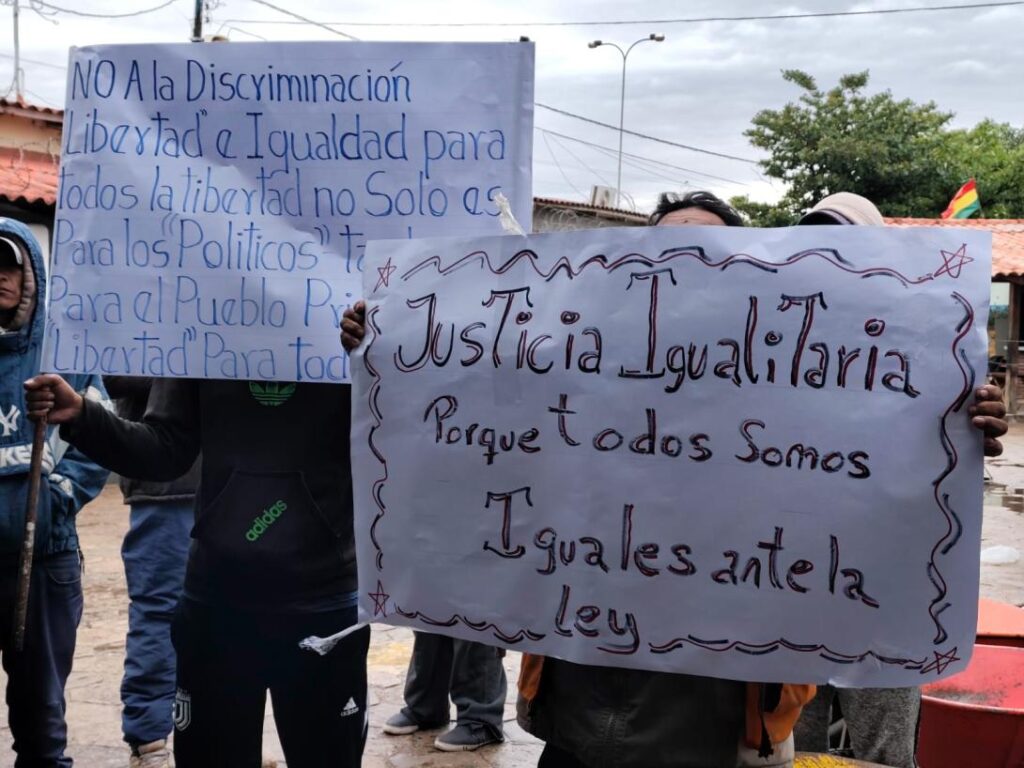 NO A la Discriminación
"Libertad" e Igualdad para
todos la libertad no Solo es
Para los "Politicos"
Para el Pueblo
"Libertad" Para
Justicia Igualitaria
Porque todos Somos
Iguales ante la
ley
adidas
adidas